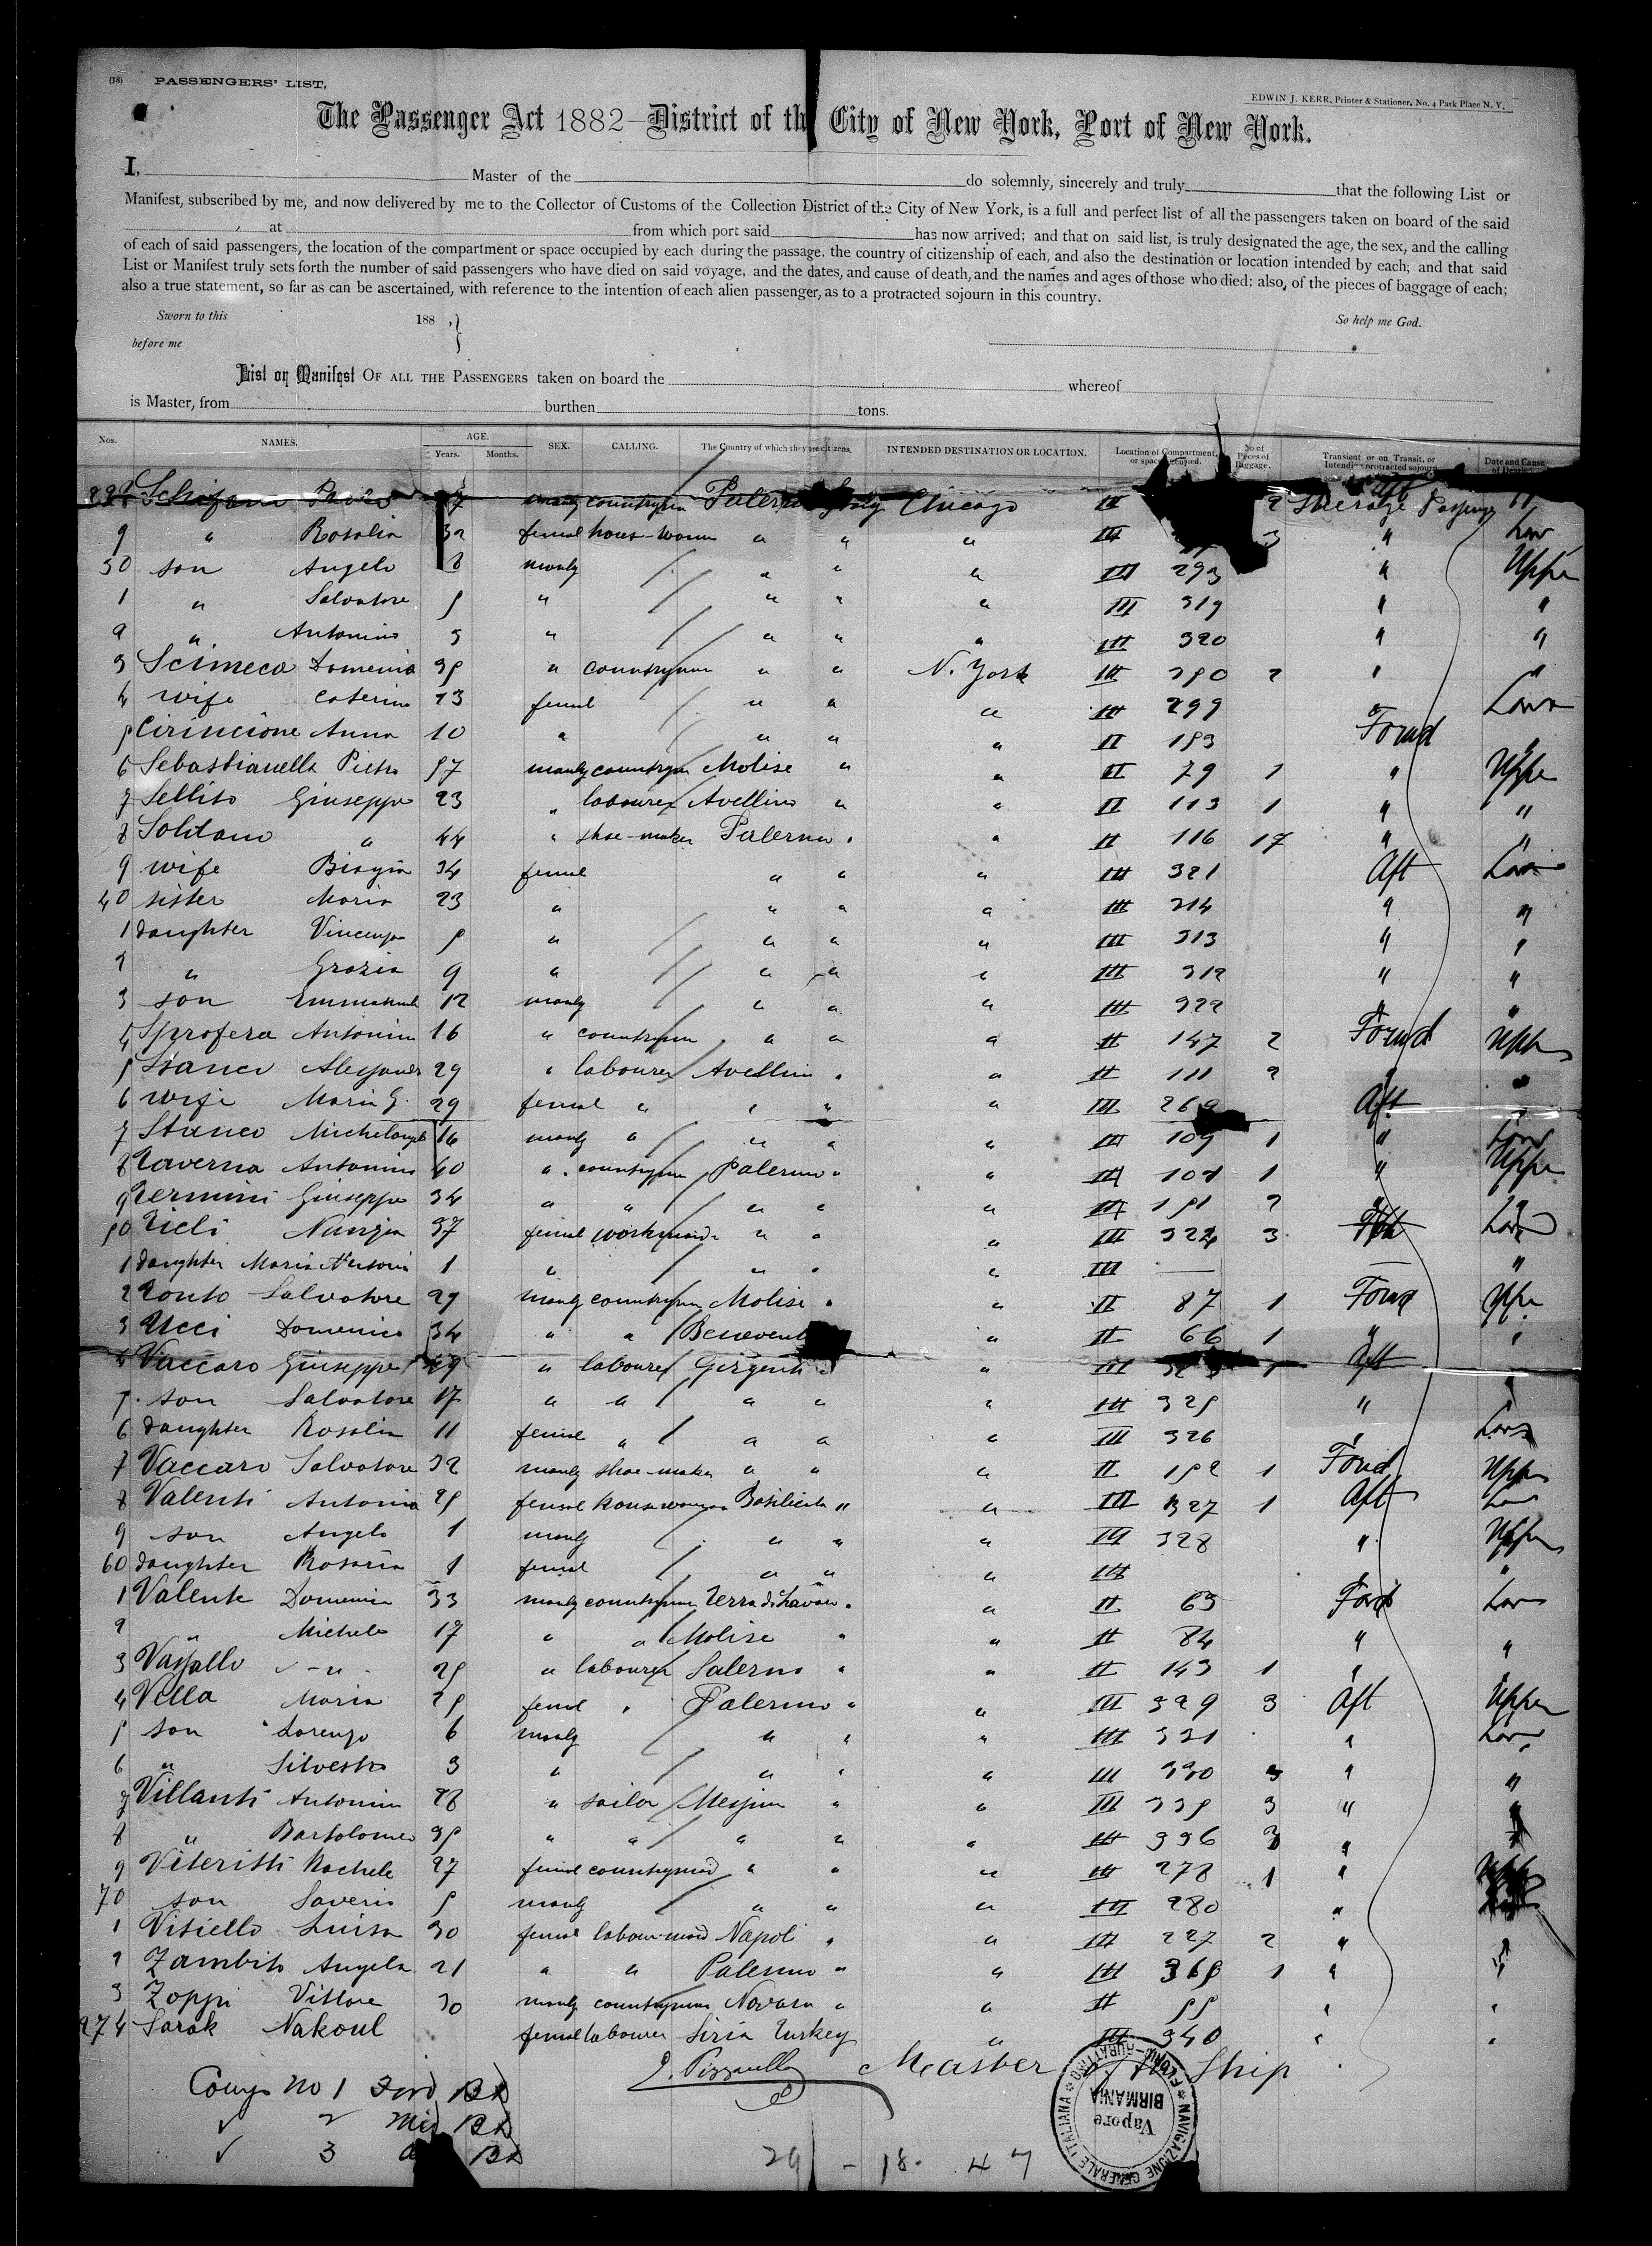 (18) PASSENGERS' LIST,
EDWIN J. KERR, Printer & Stationer, No. 4 Park Place N. Y.
The Passenger Act 1882—District of the City of New York, Port of New York.
I, Master of the do solemnly, sincerely and truly that the following List or
Manifest, subscribed by me, and now delivered by me to the Collector of Customs of the Collection District of the City of New York, is a full and perfect list of all the passengers taken on board of the said
at from which port said has now arrived; and that on said list, is truly designated the age, the sex, and the calling
of each of said passengers, the location of the compartment or space occupied by each during the passage. the country of citizenship of each, and also the destination or location intended by each; and that said
List or Manifest truly sets forth the number of said passengers who have died on said voyage, and the dates, and cause of death, and the names and ages of those who died; also, of the pieces of baggage of each;
also a true statement, so far as can be ascertained, with reference to the intention of each alien passenger, as to a protracted sojourn in this country.
Sworn to this 188 , } So help me God.
before me
List or Manifest OF ALL THE PASSENGERS taken on board the whereof
is Master, from burthen tons.
Nos. NAMES. AGE. Years. Months. SEX. CALLING. The Country of which they are citizens. INTENDED DESTINATION OR LOCATION. Location of Compartment, or space occupied. No of Pieces of Baggage. Transient or on Transit, or Intending protracted sojourn Date and Cause of Death
Schifani countryman Palermo Italy Chicago III 2 Steerage Passenger
9 " Rosalia 32 femal hous-woman " " " III 3 " Low
30 son Angelo 8 manly " " " III 293 " Uppe
1 " Salvatore 5 " " " " III 319 " "
2 " Antonino 3 " " " " III 320 " "
3 Scimeca Domenico 35 " countryman " " N. York III 2 "
4 wife Caterina 23 femal " " " III 299 Low
5 Cirincione Anna 10 " " " " II 153 Forwd "
6 Sebastianelli Pietro 57 manly countryman Molise " " II 79 1 " Uppe
7 Sellito Giuseppe 23 " labourer Avellino " " II 113 1 " "
8 Solitano " 44 " shoe-maker Palermo " " II 116 17 " "
9 wife Biagia 34 femal " " " III 321 Aft Low
40 sister Maria 23 " " " " III 314 " "
1 daughter Vincenza 5 " " " " III 313 " "
2 " Grazia 9 " " " " III 312 " "
3 son Emmanuele 12 manly " " " III 322 "
4 Sprofera Antonino 16 " countryman " " " II 147 2 Forwd Uppe
5 Stanco Alessandro 29 " labourer Avellino " " II 111 2 "
6 wife Maria G. 29 femal " " " " III Aft "
7 Stanco Michelangelo 16 manly " " " " III 109 1 " Low
8 Taverna Antonino 40 " countryman Palermo " " III 1 " Uppe
9 Termini Giuseppe 34 " " " " " III 151 2 "
50 Ticli Nunzia 37 femal workmaid " " " III 324 3 Low
1 daughter Maria 1 " " " " III — — "
2 Tonto Salvatore 29 manly countryman Molise " " II 87 1 Forwd Uppe
3 Ucci Domenico 34 " " Benevent " II 66 1 " "
4 Vaccaro Giuseppe " labourer Girgenti " " III 1 Aft
5 son Salvatore 17 " " " " " III 325 " "
6 daughter Rosalia 11 femal " " " " III 326 " Low
7 Vaccaro Salvatore 32 manly shoe-maker " " " II 152 1 Forwd Uppe
8 Valenti Antonia 25 femal housewoman Basilicata " " III 327 1 Aft Low
9 son Angelo 1 manly " " " III 328 " Uppe
60 daughter Rosaria 1 femal " " " III "
1 Valente Domenico 33 manly countryman Terra di Lavoro " " II 63 Forwd Low
2 " Michele 17 " " Molise " " II 84 " "
3 Vassallo " 25 " labourer Salerno " " II 143 1 "
4 Villa Maria 25 femal " Palermo " " III 329 3 Aft Uppe
5 son Lorenzo 6 manly " " " III 331 " Low
6 " Silvestro 3 " " " " III 330 3 " "
7 Villanti Antonino 28 " sailor Messina " " III 335 3 " "
8 " Bartolomeo 35 " " " " " III 336 3 "
9 Viteritti Rachele 27 femal countrymaid " " " III 278 1 "
70 son Saverio 5 manly " " " III 280 "
1 Vitiello Luisa 30 femal labour-maid Napoli " " III 227 2 "
2 Zambito Angela 21 " " Palermo " " III 365 1 " "
3 Zoppi Vittore 30 manly countryman Novara " " II 55 " "
274 Sarak Nakoul femal labourer Siria Turkey " III 340 " "
Master of the Ship
Comp no 1 Fwd
✓ 2 Mid
✓ 3
NAVIGAZIONE GENERALE ITALIANA
FLORIO-RUBATTINO
Vapore
BIRMANIA
29 - 18. 47